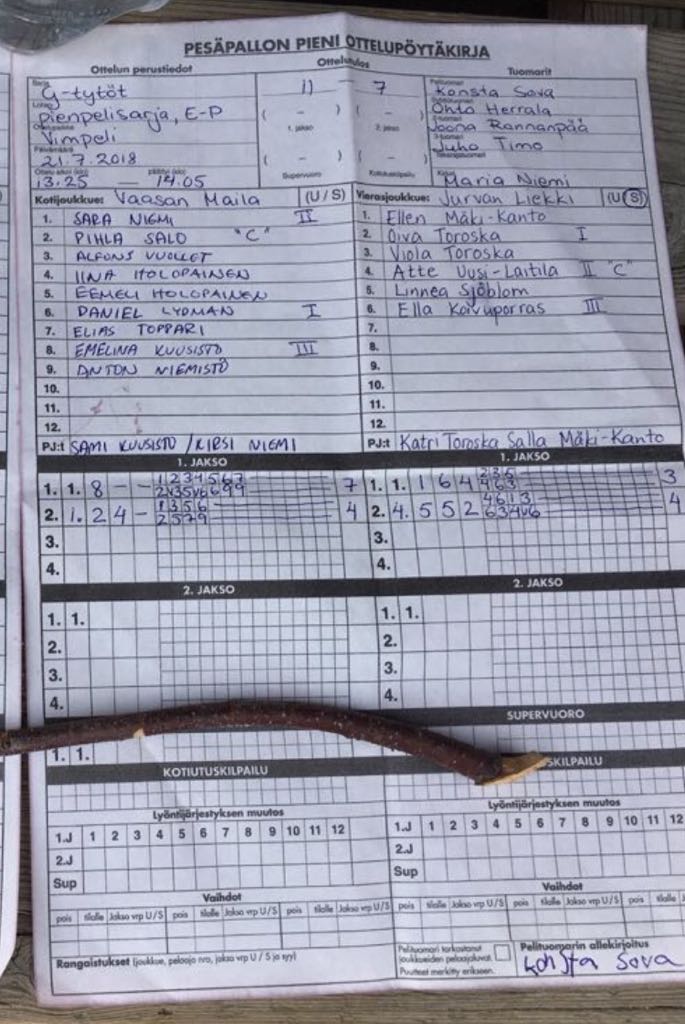 PESÄPALLON PIENI OTTELUPÖYTÄKIRJA
Ottelun perustiedot
Ottelutulos
Tuomarit
G-tytöt
11 7
Konsta Sova
pienpelisarja, E-P
( – ) ( – )
Ohto Herrala
Vimpeli
1. jakso 2. jakso
Joona Rannanpää
21.7.2018
( – ) ( – )
Juho Timo
13.25 — 14.05
Supervuoro Kotiutuskilpailu
Maria Niemi
Kotijoukkue: Vaasan Maila (U / S)
Vierasjoukkue: Jurvan Liekki (U/S)
1. SARA NIEMI II
2. PIHLA SALO "C"
3. ALFONS VUOLLET
4. IINA HOLOPAINEN
5. EEMELI HOLOPAINEN
6. DANIEL LYDMAN I
7. ELIAS TOPPARI
8. EMELINA KUUSISTO III
9. ANTON NIEMISTÖ
10.
11.
12.
PJ:t SAMI KUUSISTO / KIRSI NIEMI
1. Ellen Mäki-Kanto
2. Oiva Toroska I
3. Viola Toroska
4. Atte Uusi-Laitila II "C"
5. Linnea Sjöblom
6. Ella Koivuporras III
7.
8.
9.
10.
11.
12.
PJ:t Katri Toroska Salla Mäki-Kanto
1. JAKSO
1. 1. 8 – – 7
2. 1. 2 4 – 1 3 5 6 2 5 7 9 4
3.
4.
1. JAKSO
1. 1. 1 6 4 2 3 5 4 6 3 3
2. 4. 5 5 2 4 6 1 3 4
3.
4.
2. JAKSO
1. 1.
2.
3.
4.
2. JAKSO
1. 1.
2.
3.
4.
SUPERVUORO
1. 1.
KOTIUTUSKILPAILU
SKILPAILU
Lyöntijärjestyksen muutos
1.J 1 2 3 4 5 6 7 8 9 10 11 12
2.J
Sup
Lyöntijärjestyksen muutos
1.J 1 2 3 4 5 6 7 8 9 10 11 12
2.J
Sup
Vaihdot
pois tilalle Jakso vrp U/S pois tilalle Jakso vrp U/S pois tilalle Jakso vrp U/S
Vaihdot
pois tilalle Jakso vrp U/S pois tilalle Jakso vrp U/S pois tilalle Jakso
Rangaistukset (joukkue, pelaaja nro, jakso vrp U / S ja syy)
Pelituomari tarkastanut
joukkueiden pelaajaluvat.
Puutteet merkitty erikseen.
Pelituomarin allekirjoitus
Konsta Sova